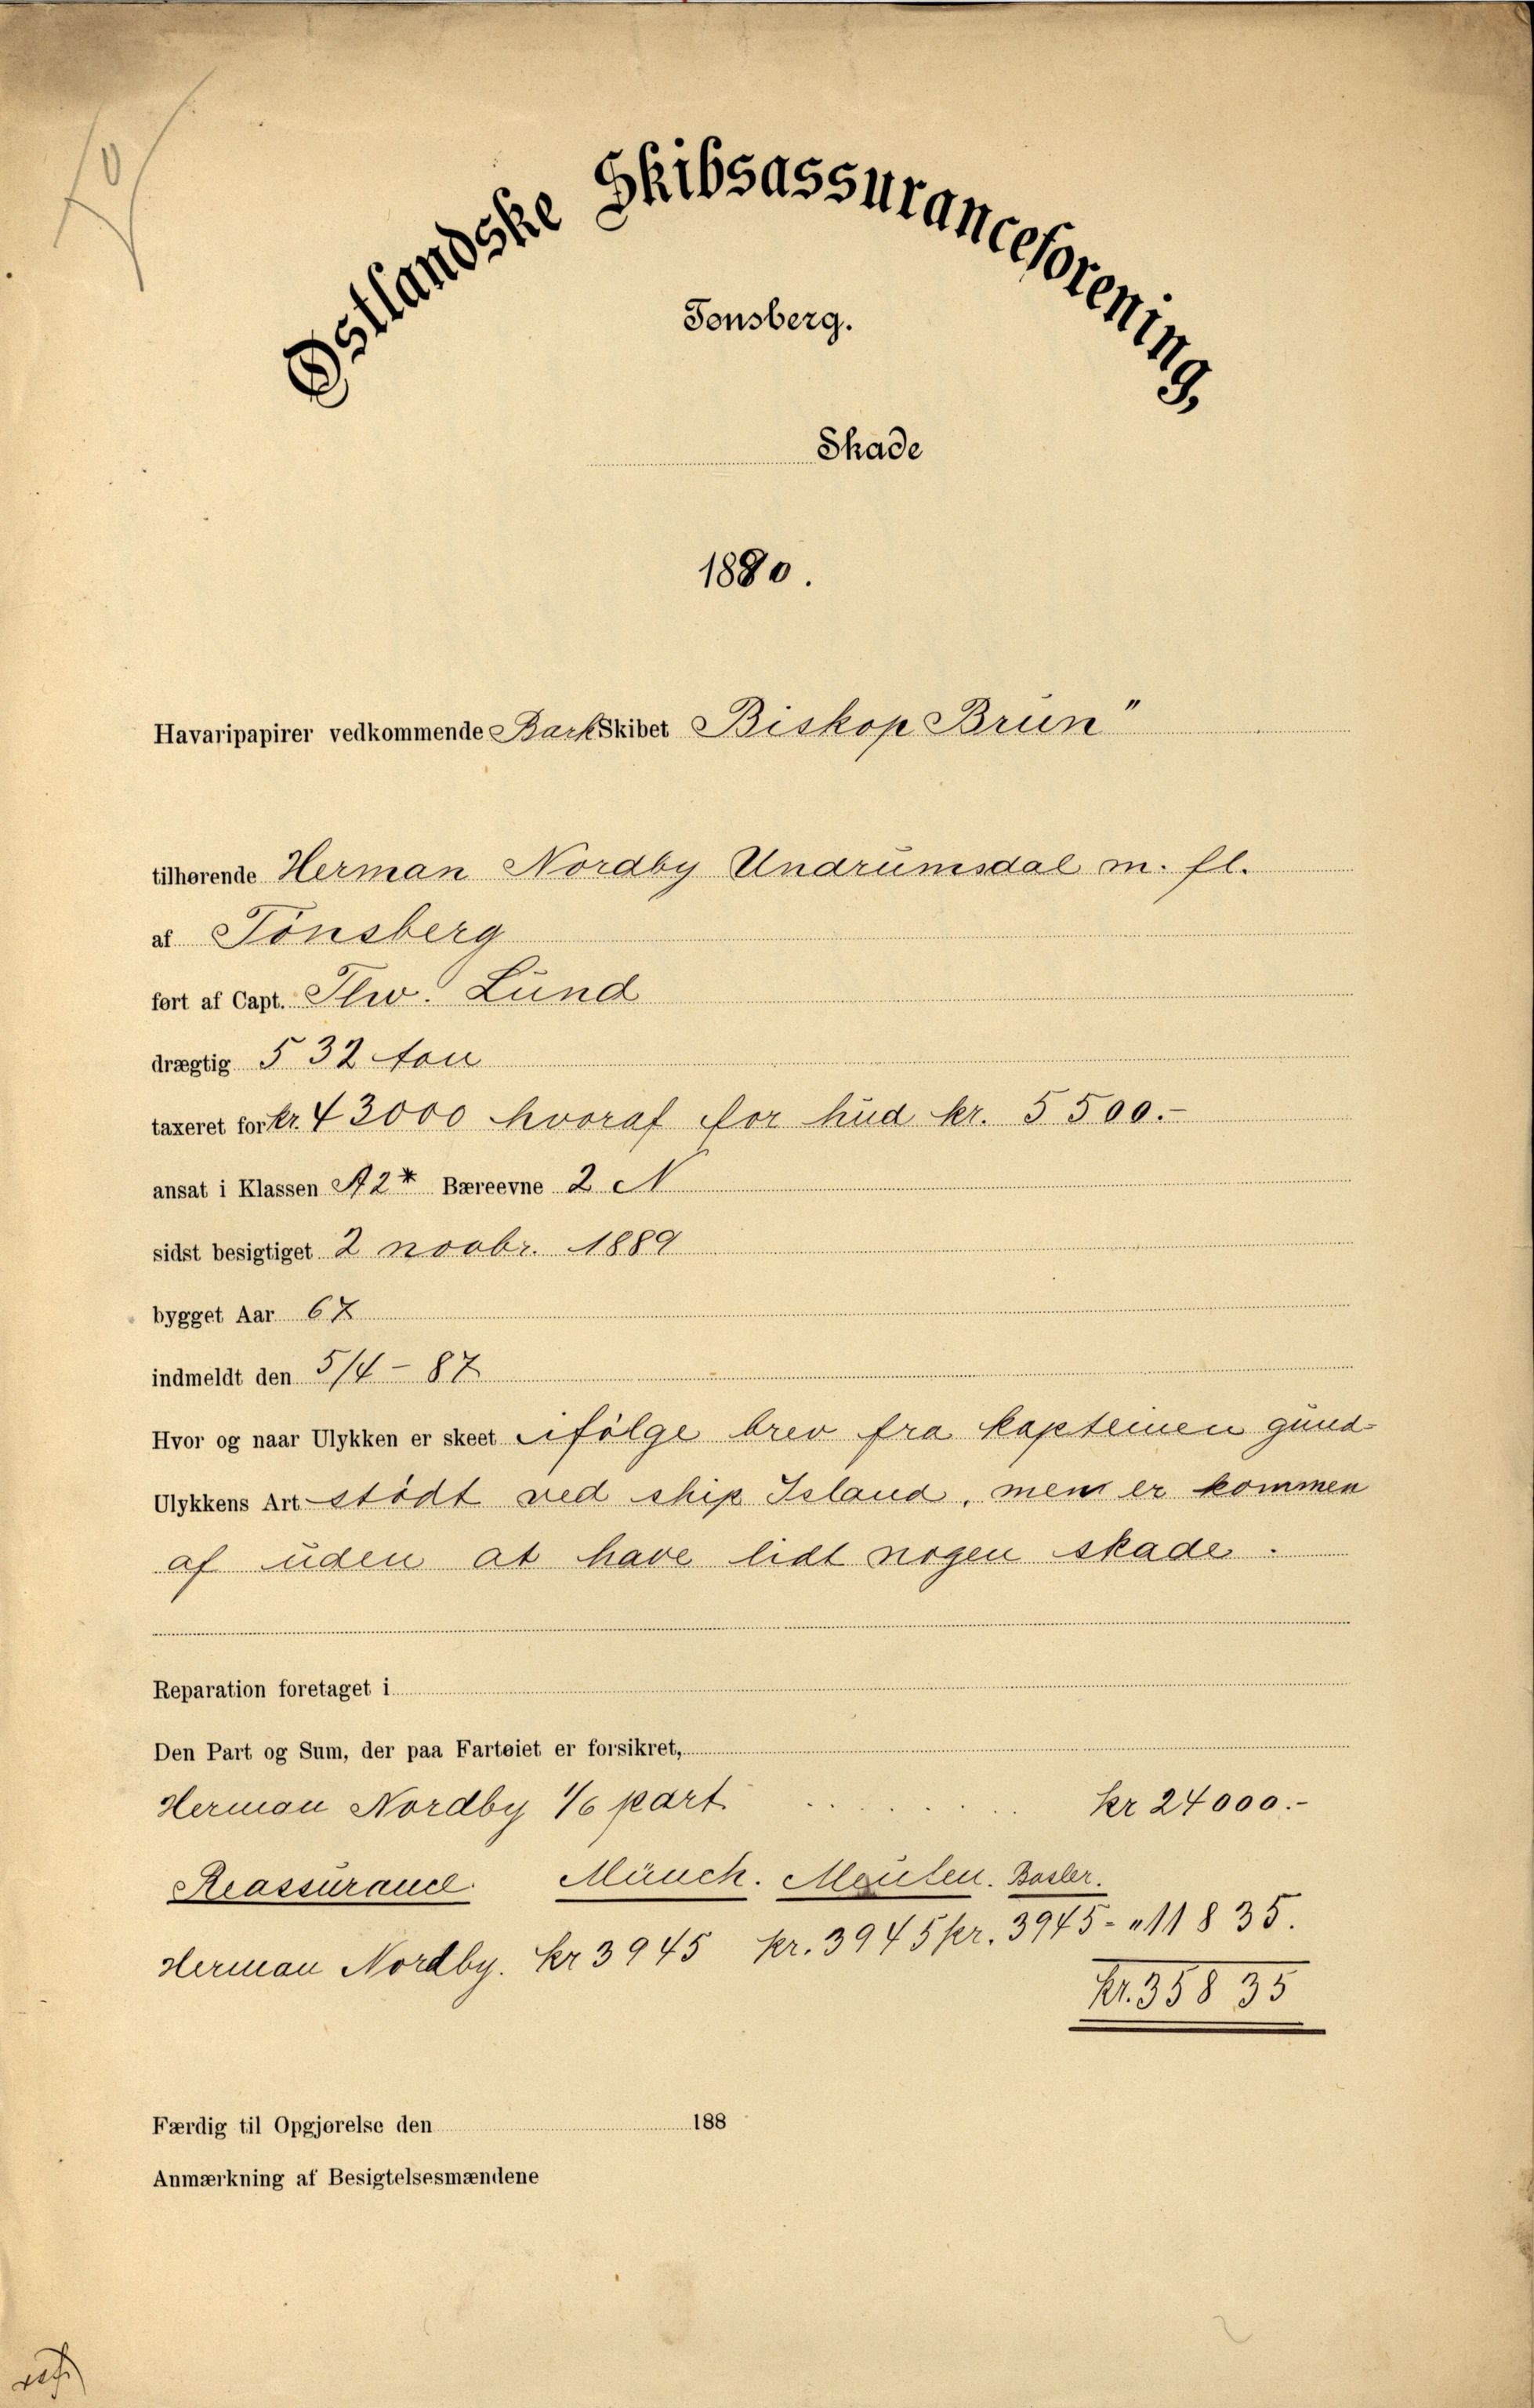 Østlandske Skibsassuranceforening,
Tønsberg.
Skade
1890.
Havaripapirer vedkommende Bark Skibet Biskop Brun"
tilhørende Herman Nordby Undrumsdal m. fl.
af Tönsberg
ført af Capt. Lund
drægtig 532 ton
taxeret for kr. 43000 hvoraf for hud kr. 5500.-
ansat i Klassen A2* Bæreevne 2 N
sidst besigtiget 2 novbr. 1889
bygget Aar 67
indmeldt den 5/4 - 87
Hvor og naar Ulykken er skeet ifölge brev fra kapteinen gund-
Ulykkens Art stödt ved ship Island, men er kommen
af uden at have lidt nogen skade.
Reparation foretaget i
Den Part og Sum, der paa Fartøiet er forsikret,
Herman Nordby 1/6 part. kr 24000.-
Reassurance. Münch. Basler.
Herman Nordby. kr 3945 kr. 3945 kr. 3945 - " 11835.
kr. 35835
Færdig til Opgjørelse den 188
Anmærkning af Besigtelsesmændene